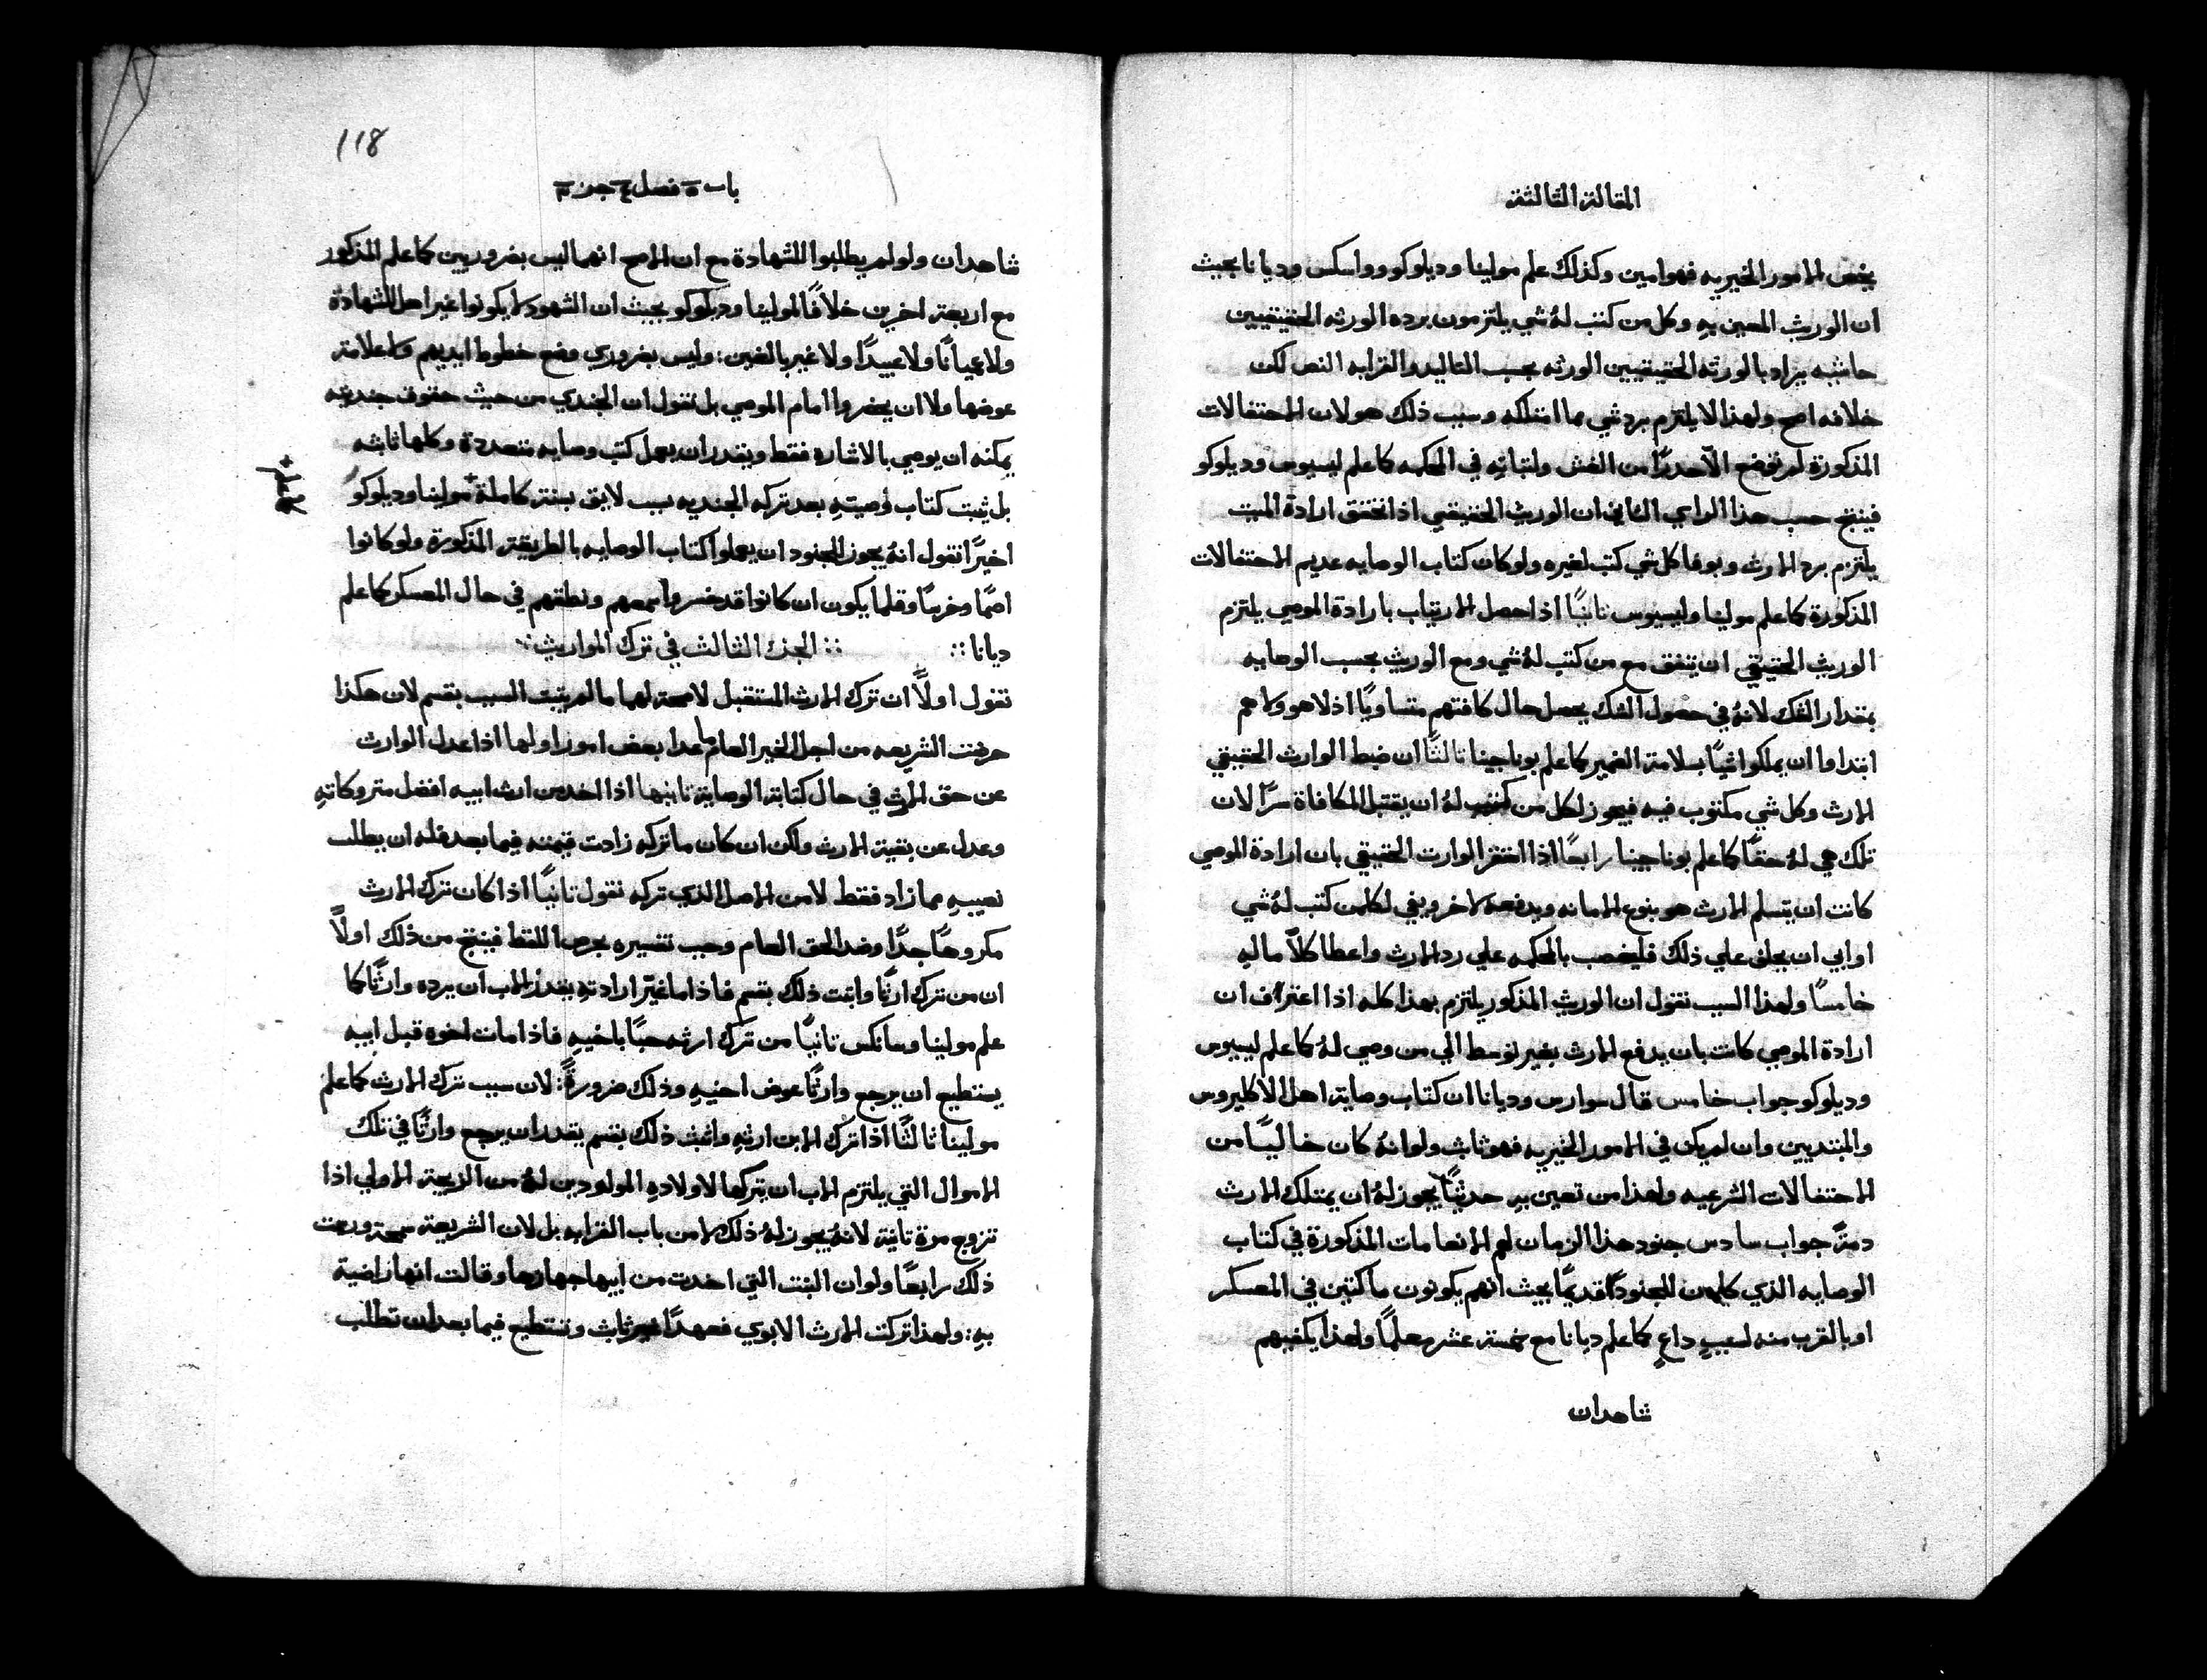 المقالة الثالثة
يخص الامور الخيريه فهو امين وكذلك علم مولينا وديلوكو وواسكس وديانا بحيث
ان الورث المعين به وكل من كتب لهُ شي يلتزمون برده الورثه الحقيقيين
حاشيه يراد بالورثه الحقيقيين الورثه بحسب التاليد والقرابه النص لكن
خلافه اصح ولهذا لا يلتزم برد شي مما امتلكه وسبب ذلك هو لان الاحتفالات
المذكورة لم توضع الّا حدرًا من الغش ولثباتهِ في المحكمه كما علم ليسيوس وديلوكو
فينتج حسب هذا الراي الثاني ان الوريث الحقيقي اذا تحقق ارادة الميت
يلتزم برد الارث وبوفا كل شي كتب لغيره ولو كان كتاب الوصايه عديم الاحتفالات
المذكورة كما علم مولينا وليسيوس ثانيًا اذا حصل الارتياب بارادة الموصي يلتزم
الوريث الحقيقي ان يتفق مع من كتب لهُ شي ومع الوريث بحسب الوصايه
بمقدار الشك لانهُ في حصول الشك يحصل حال كافتهم متساويًا اذ لا هو ولا هم
ابتداوا ان يملكوا شيًا بسلامة الضمير كما علم بوناجينا ثالثًا ان ضبط الوارث الحقيقي
الارث وكل شي مكتوب فيه فيجوز لكل من كتب لهُ ان يقتبل المكافاة سرًا لان
تلك هي لهُ حقًا كما علم بوناجينا رابعًا اذا افتقر الوارث الحقيقي بان ارادة الموصي
كانت ان يتسلم الارث هو بنوع الامانه ويدفعهُ لاخر ويفي لكلمن كتب لهُ شي
او ابي ان يحلف علي ذلك فليغصب بالمحكمه علي رد الارث واعطا كلاً ما لهِ
خامسًا ولهذا السبب نقول ان الورث المذكور يلتزم بهذا كله اذا اعترف ان
ارادة الموصي كانت بان يدفع الارث بغير توسط الي من وصي لهُ كما علم ليسيوس
وديلوكو جواب خامس قال سوارس وديانا ان كتاب وصاية اهل الاكليروس
والمبتديين وان لم يكن في الامور الخيريه فهو ثابت ولو انهُ كان خاليًا من
الاحتفالات الشرعيه ولهذا من تعين بهِ حديثًا يجوز لهُ ان يمتلك الارث
دمةً جواب سادس جنود هذا الزمان لهم الانعامات المذكورة في كتاب
الوصايه الذي كان للجنود قديمًا بحيث انهم يكونون ماكتين في المعسكر
او بالقرب منه لسببٍ داعٍ كما علم ديانا مع خمسة عشر معلمًا ولهذا يكفيهم
شاهدان
118
باب ٥ فصل ٤ جز ٣
شاهدان ولو لم يطلبوا للشهادة مع ان الاصح انهما ليس بضروريين كما علم المذكور
مع اربعة اخرين خلافًا لمولينا وديلوكو بحيث ان الشهود لا يكونوا غير اهل للشهادة
ولا عميانًا ولا عبيدًا ولا غير بالغين: وليس بضروري وضع خطوط ايديهم ولا علامة
عوضها ولا ان يحضروا امام الموصي بل نقول ان الجندي من حيث حقوق جنديته
يمكنه ان يوصي بالاشاره فقط ويقدر ان يعمل كتب وصايه متعددة وكلها ثابته
بل ثبت كتاب وصيتهِ بعد تركه الجنديه بسب لايق بسنة كاملة + مولينا وديلوكو
+ كما علم
اخيرًا نقول انهُ يجوز للجنود ان يعملوا كتاب الوصايه بالطريقة المذكورة ولو كانوا
اصمًا وخرسًا وقلما يكون ان كانوا قد خسروا سمعهم ونطقهم في حال المعسكر كما علم
ديانا ∴ ∴ الجز الثالث في ترك المواريث ∴
نقول اولاً ان ترك الارث المستقبل لا صحة لهما ما لم يثبت السبب بقسم لان هكذا
حرضت الشريعه من اجل الخير العام ما عدا بعض امور اولها اذا عدل الوارث
عن حق الارث في حال كتابة الوصاية ثانيها اذا اخد من ارث ابيه افضل متروكاتهِ
وعدل عن بقية الارث ولكن ان كان ما تركه زادت قيمته فيما بعد فله ان يطلب
نصيبهِ مما زاد فقط لا من الاصل الذي تركه نقول ثانيًا اذا كان ترك الارث
مكروهًا جدًا وضد الحق العام وجب تفسيره بحرص اللفظ فينتج من ذلك اولاً
ان من ترك ارثًا واثبت ذلك بقسم فاذا ما غيّر ارادته يقدر الاب ان يرده وارثًا كما
علم مولينا وسانكس ثانيًا من ترك ارثه حبًا باخيهِ فاذا مات اخوه قبل ابيه
يستطيع ان يرجع وارثًا عوض اخيهِ وذلك ضرورةً: لان سبب ترك الارث كما علم
مولينا ثالثًا اذا ترك الابن ارثهِ واثبت ذلك بقسم يقدر ان يرجع وارثًا في تلك
الاموال التي يلتزم الاب ان يتركها لاولادهِ المولودين لهُ من الزيجة الاولي اذا
تزوج مرة ثانية لانهُ يجوز لهُ ذلك لا من باب القرابه بل لان الشريعة سمحت ورعت
ذلك رابعًا ولو ان البنت التي اخدت من ابيها جهازها وقالت انها راضية
بهِ: ولهذا تركت الارث الابوي فعهدًا غير ثابت وتستطيع فيما بعد ان تطلب